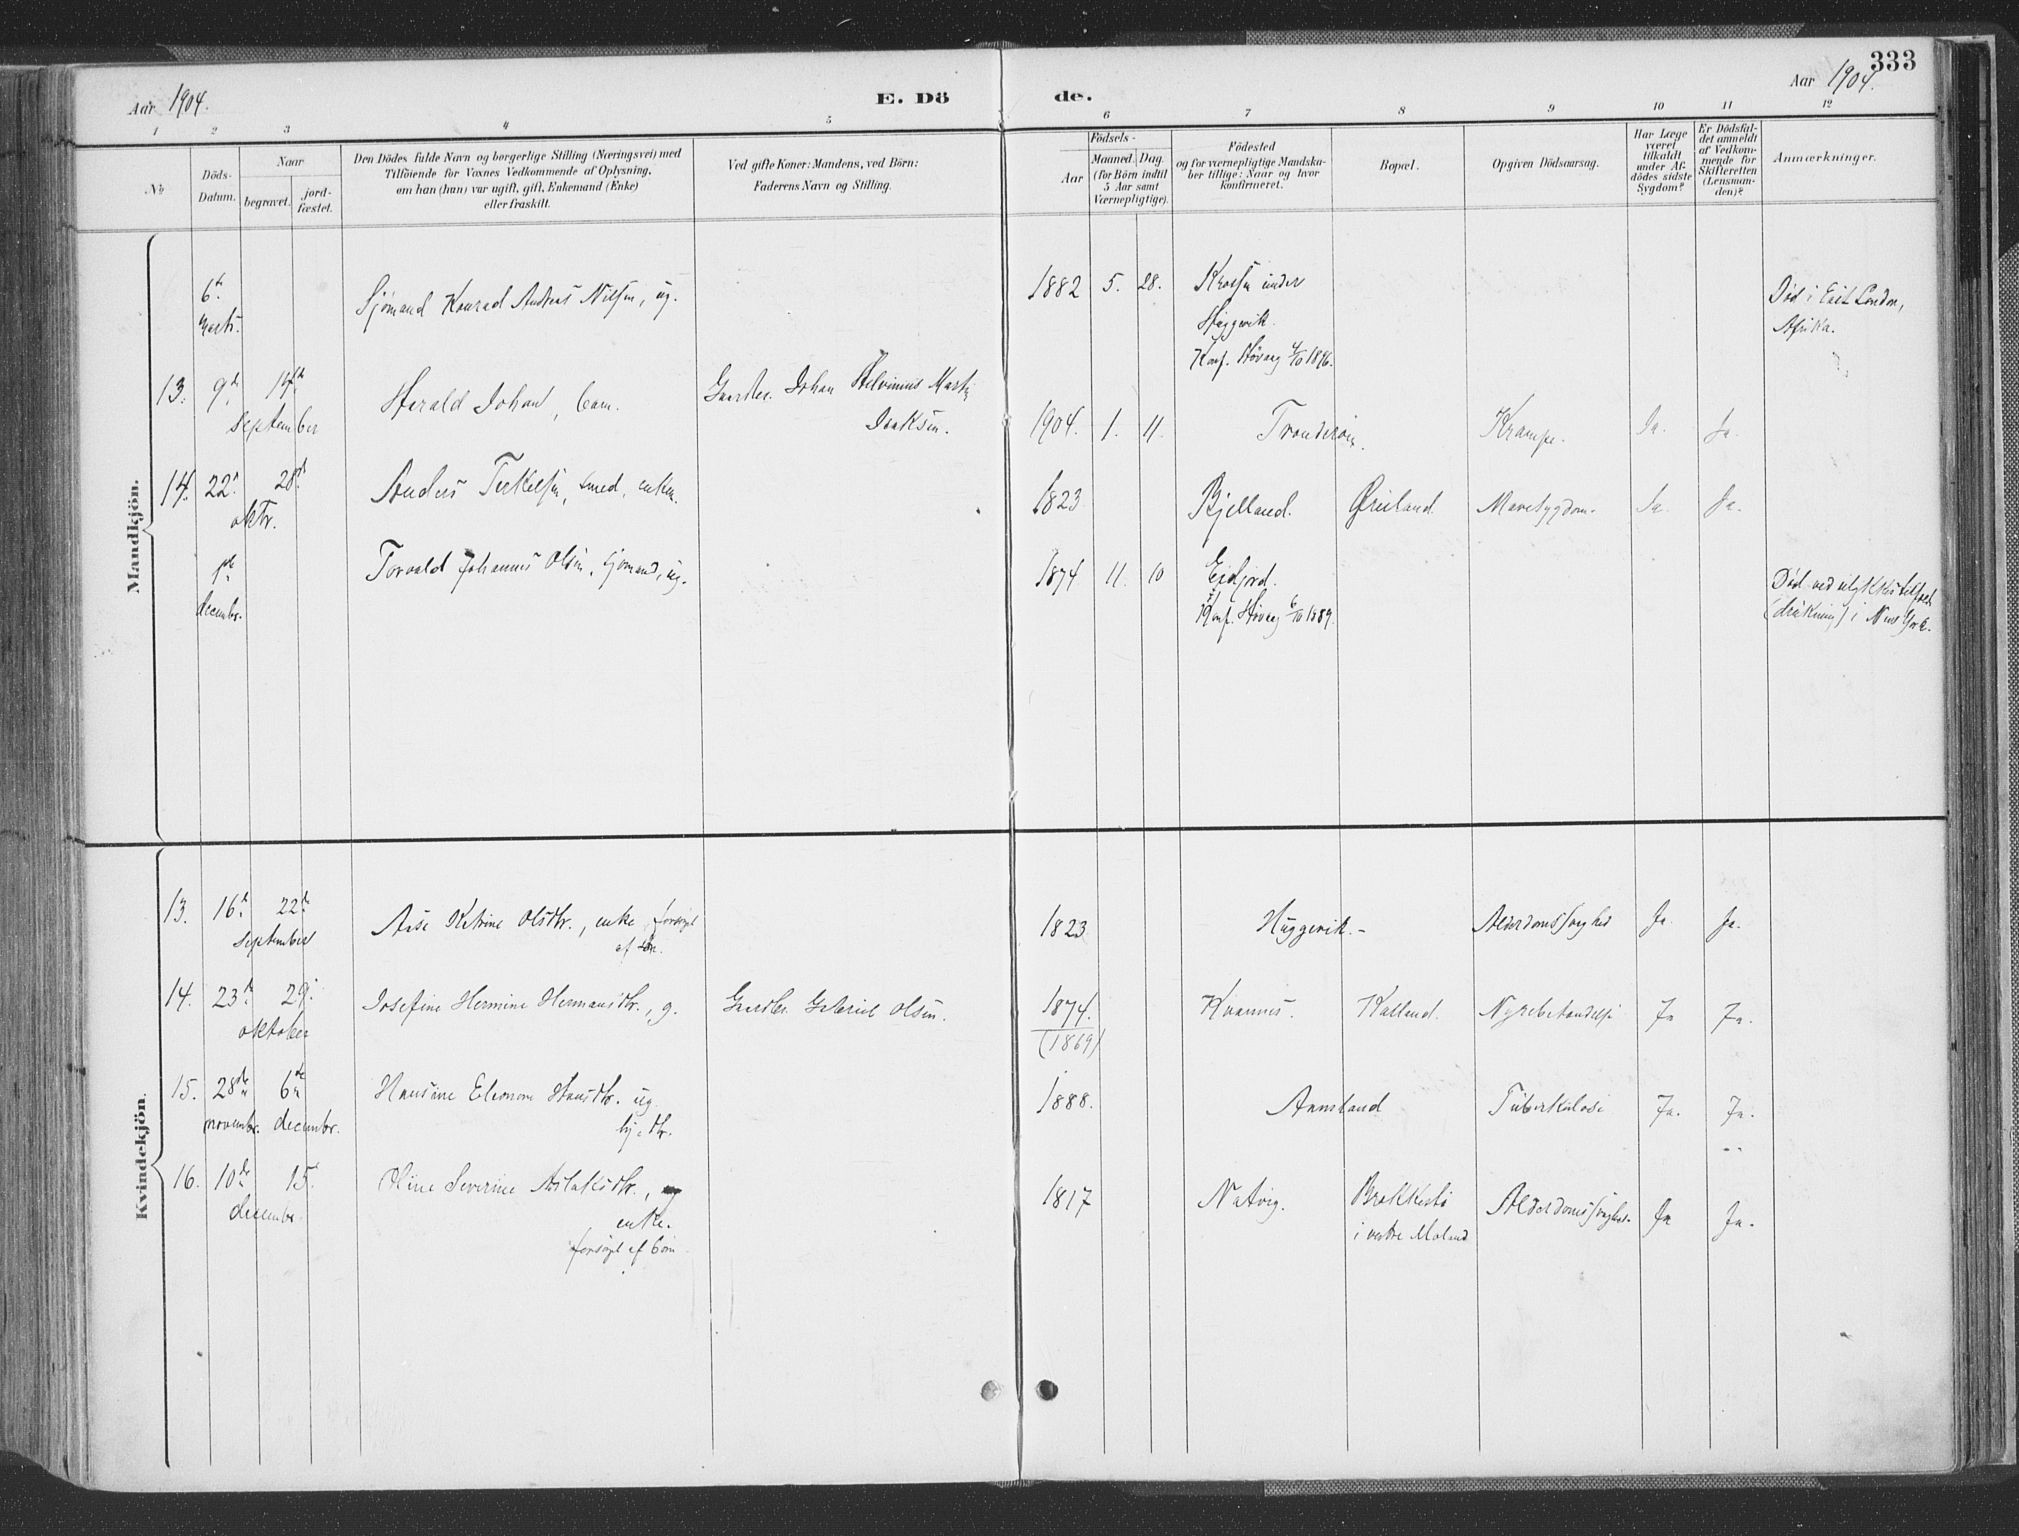 333
Aar 1904.
E. Dö
de.
Aar 1904.
1 2 3 4 5 6 7 8 9 10 11 12
No
Döds-
Datum.
Naar
begravet.
jord-
fæstet.
Den Dödes fulde Navn og borgerlige Stilling (Næringsvei) med
Tilföiende for Voxnes Vedkommende af Oplysning,
om han (hun) var ugift, gift, Enkemand (Enke)
eller fraskilt.
Ved gifte Koner: Mandens, ved Börn:
Faderens Navn og Stilling.
Födsels-
Aar
Maaned. Dag.
(for Börn indtil
5 Aar samt
Værnepligtige).
Födested
og for værnepligtige Mandska-
ber tillige: Naar og hvor
konfirmeret.
Bopæl.
Opgiven Dödsaarsag.
Har Læge
været
tilkaldt
under Af-
dödes sidste
Sygdom?
Er Dödsfal-
det anmeldt
af Vedkom-
mende for
Skifteretten
(Lensman-
den)?
Anmærkninger.
Mandkjön.
6te
Sjömand Konrad Andreas Nilsen, ug.
1882 5. 28.
under
Huggevik.
Konf. Høvaag 4/10 1896.
Död i East London,
Afrika.
13. 9de 14de
september
Harald Johan, barn.
Gaardbr. Johan Martin
Isaksen.
1904. 1. 11.
Krampe. Ja. Ja.
14. 22de 28de
oktbr.
Anders Terkelsen, smed, enkem.
1823 Bjelland. Øresland. Mavesygdom. Ja. Ja.
1ste
decembr.
Torvald Johannes Olsen, sjömand, ug.
1874 11. 10 Eidjord.
Konf. Høvaag 6/10 1889.
Död ved ulykkestilfæld
(drukning) i New York.
Kvindekjön.
13. 16de 22de
september
Aase Katrine Olsdtr., enke, forsörget
af sön.
1823 Huggevik. - Alderdomssvaghed Ja. Ja.
14. 23de 29.
oktober
Josefine Hermine Hermansdtr., g.
Gaardbr. Gabriel Olsen.
1874.
(1869)
Kvannes. Kalland. Nyrebetændelse Ja Ja.
15. 28de 6te
novembr. decembr.
Hansine Eleonore Hansdtr. ug.
1888. Aamland Tuberkulose Ja. Ja.
16. 10de 15.
decembr.
Oline Severine Aslaksdtr.,
enke.
forsörget af börn
1817 Natvig. Brekkestö
i vestre Moland
Alderdomssvaghed. Ja Ja.